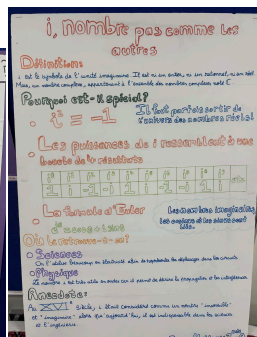 i, nombre pas comme les
autres
Définition:
i est le symbole de l'unité imaginaire. Il est ni un entier, ni un rationnel, ni un réel
Mais, un nombre complexe, appartenant à l'ensemble des nombres complexes noté C
Pourquoi est-il spécial?
i² = -1
Il faut parfois sortir de
l'univers des nombres réels!
Les puissances de i ressemblent à une
boucle de 4 résultats
1 i -1 -i 1 i -1 -i 1 etc
La formule d'Euler
Les nombres imaginaires,
les copains et les sinus sont
liés.
Où la retrouve-t-on?
Sciences
Physique
Le nombre i est très utile en ondes car il permet de décrire la propagation et les interférences
Anecdote:
Au XVI siècle, i était considéré comme un nombre "impossible"
et "imaginaire" alors qu'aujourd'hui, il est indispensable dans les sciences
et l'ingénierie